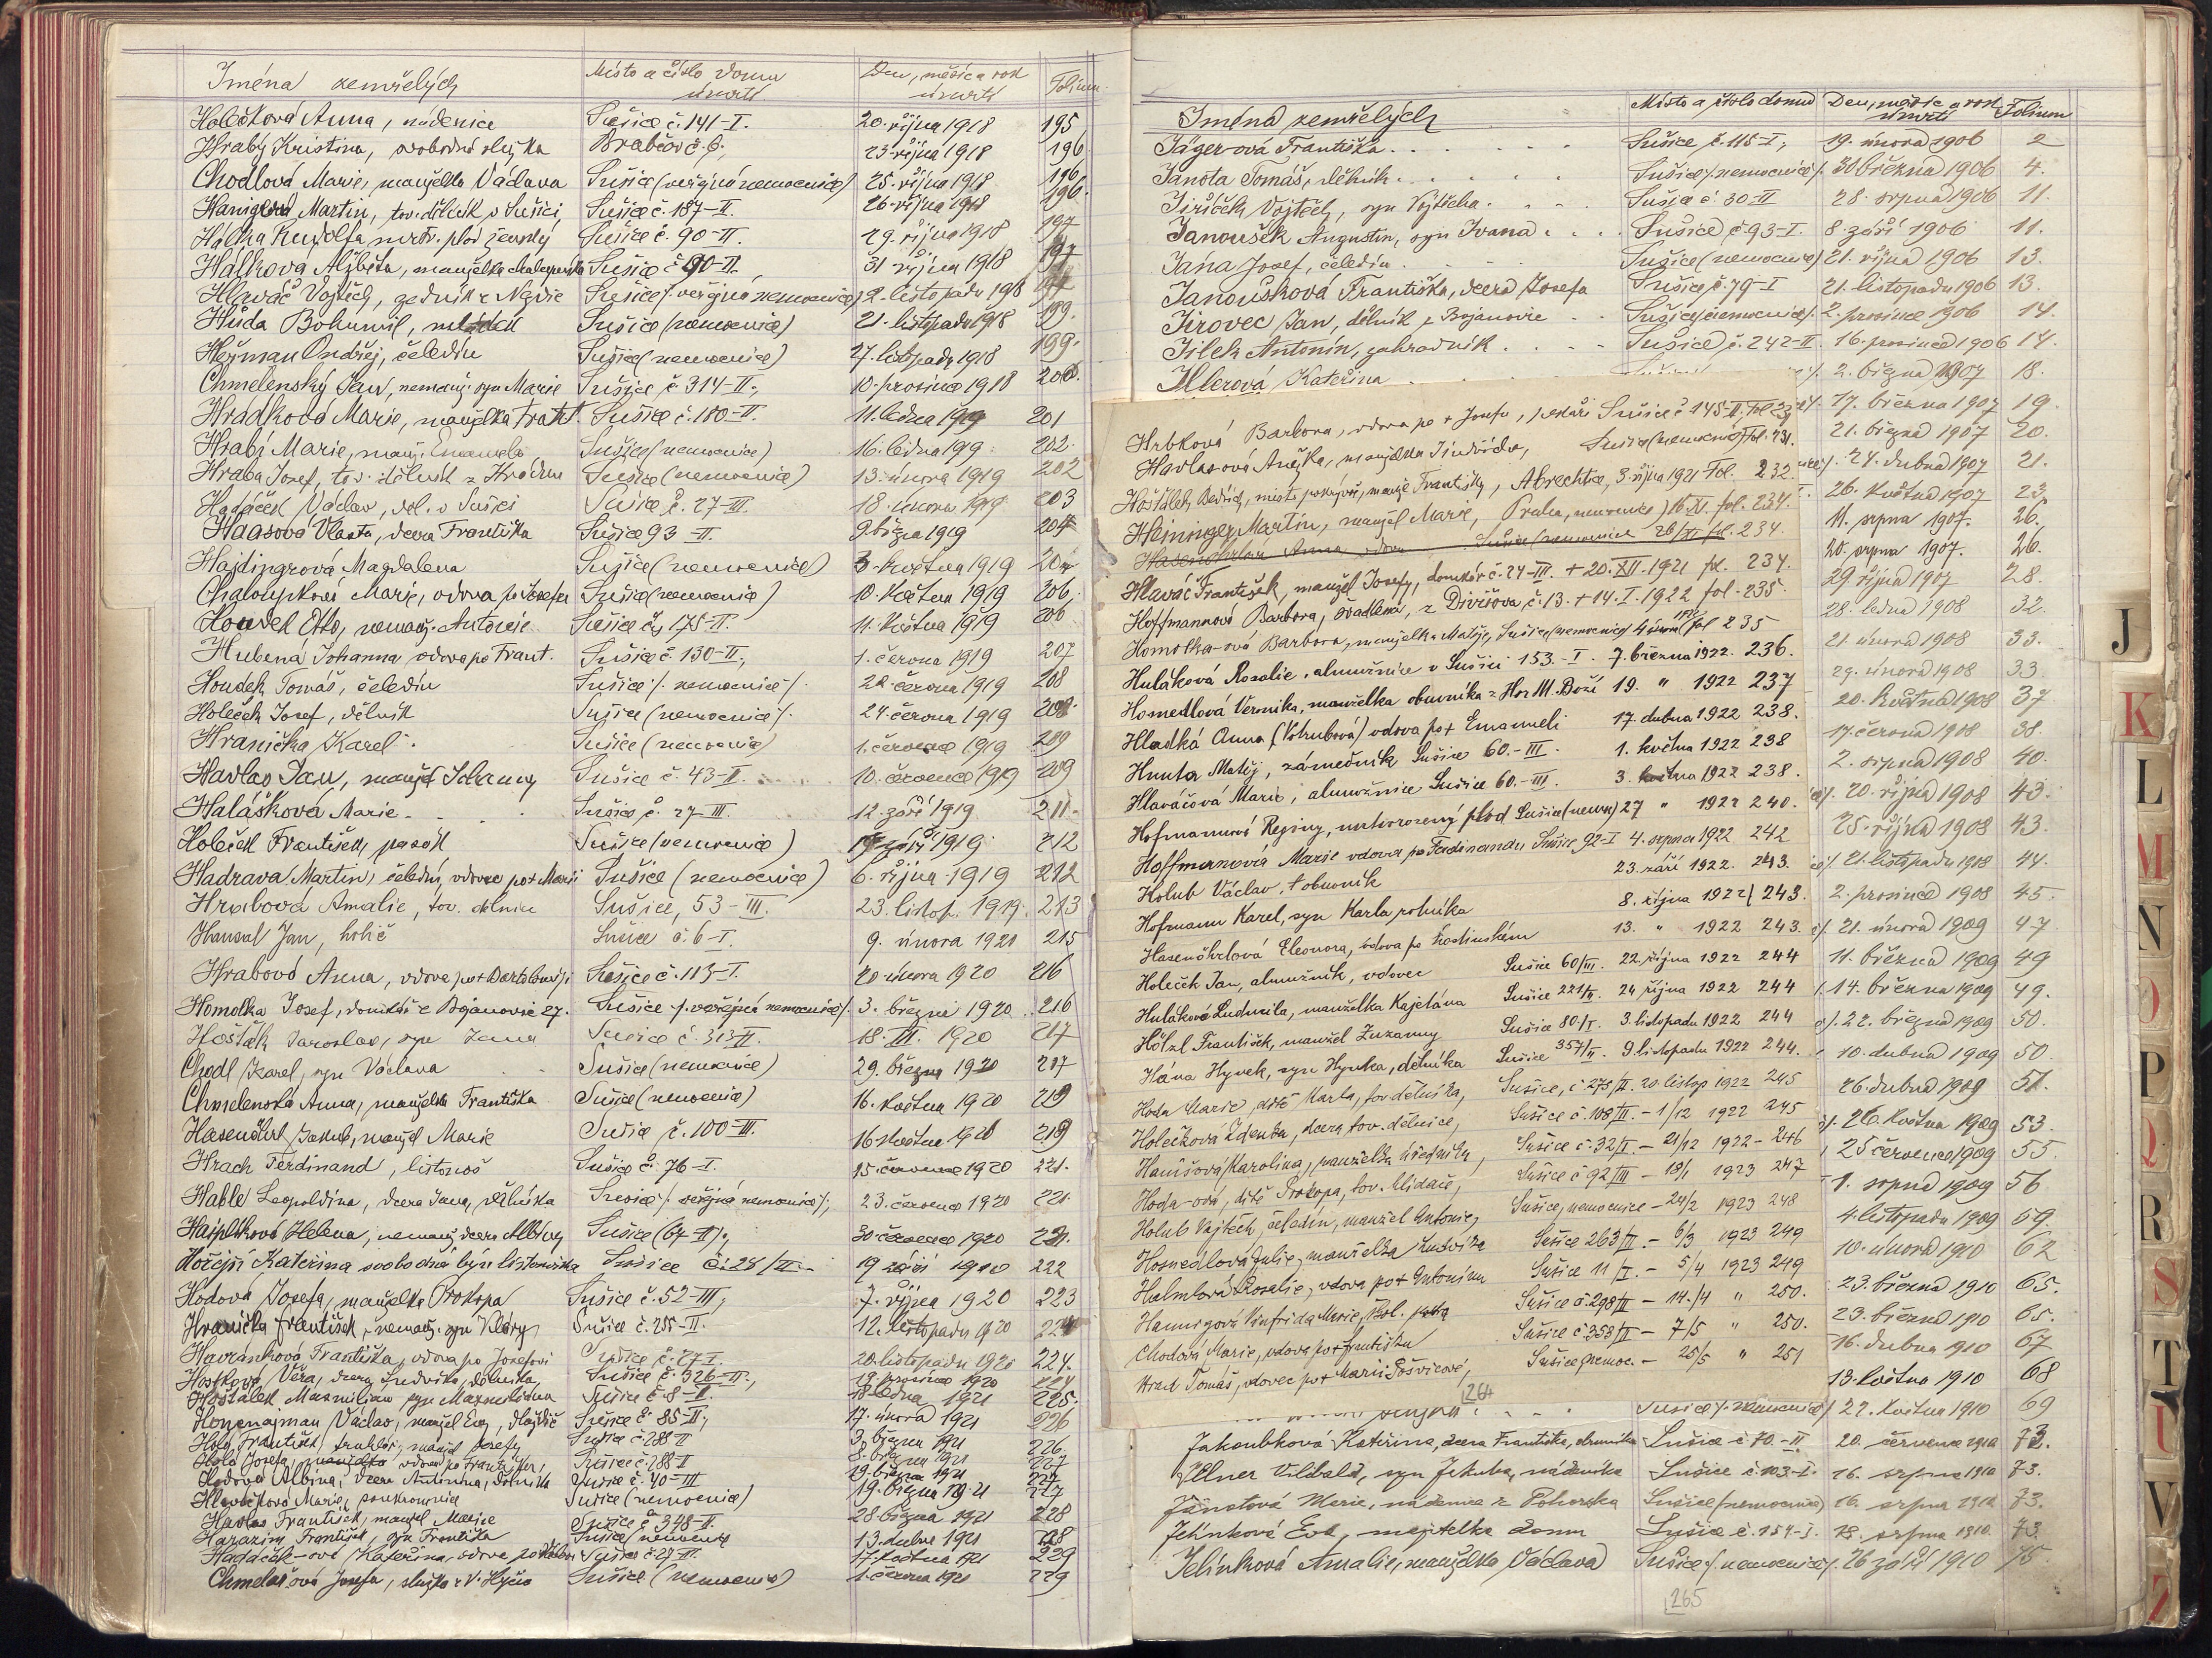 Jména zemřelých Místo a číslo domu úmrtí Den, měsíc a rok úmrtí Folium
Holečková Anna, nádenice Sušice č. 141-I. 20. října 1918 195
Hrabý Kristina, svobodná služka č. 6, 23. října 1918 196
Chodlová Marie, manželka Václava Sušice (veřejná nemocnice) 25. října 1918 196
Martin, tov. dělník v Sušici, Sušice č. 187-II. 26. října 1918 196.
Rudolfa, mrtv. plod ženský Sušice č. 90-II. 29. října 1918 197
Hálková Alžběta, manželka Sušice č. 90-II. 31 října 1918 197
Hlaváč Vojtěch, zedník z Sušice /: veřejná nemocnice) 2. listopadu 1918 197
Hůda Bohumil, Sušice (nemocnice) 21. listopadu 1918 199.
Heřman Ondřej, čeledín Sušice (nemocnice) 27. listopadu 1918 199.
Chmelenský Jan, nemanž. syn Marie Sušice č. 314-II., 10. prosince 1918 200.
Hrádková Marie, manželka Frant. Sušice č. 180-II. 11. ledna 1919 201
Hrabý Marie, manž. Emanuela Sušice (nemocnice) 16. ledna 1919. 202.
Hraba Josef, tov. dělník z Sušice (nemocnice) 13. února 1919 202
Hadáček Václav, děl. v Sušici Sušice č. 27-III. 18. února 1919 203
Haasová Vlasta, dcera Františka Sušice 93-II. 9. března 1919 204
Hajdingrová Magdalena Sušice (nemocnice) 3. května 1919
Chaloupková Marie, vdova po Josefu Sušice (nemocnice) 10. května 1919 206.
Otto, nemanž. Antonie Sušice č. 175-II. 11. května 1919 206
Hubená Johanna vdova po Frant. Sušice č. 130-II., 1. června 1919 207
Houdek Tomáš, čeledín Sušice /: nemocnice /: 22. června 1919 208
Holeček Josef, dělník Sušice (nemocnice) 24. června 1919 208.
Hranička Karel Sušice (nemocnice) 1. července 1919 209
Havlas Jan, manžel Johanny Sušice č. 43-II. 10. července 1919 209
Halášková Marie Sušice č. 27-III. 12. září 1919 211.
Holeček František, pasák Sušice (nemocnice) září 1919. 212
Hadrava Martin, čeledín, vdovec po + Marii Sušice (nemocnice) 6. října 1919 212
Hrabová Amalie, tov. dělnice Sušice, 53-III. 23. listop. 1919. 213
Hanzal Jan, holič Sušice č. 6-I. 9. února 1920 215
Hrabová Anna, vdova po + Bartoloměji Sušice č. 113-I. 20. února 1920 216
Homolka Josef, domkář z Bojanovic 27. Sušice /: veřejná nemocnice /. 3. března 1920. 216
Hošťák Jaroslav, syn Jana Sušice č. 313-II. 18. III. 1920 217
Chodl Karel, syn Václava Sušice (nemocnice) 29. března 1920 217
Chmelenská Anna, manželka Františka Sušice (nemocnice) 16. května 1920 219
Hasenöhrl Jakub, manžel Marie Sušice č. 100-III. 16. května 1920 219
Hrach Ferdinand, listonoš Sušice č. 76-I. 15. července 1920 221.
Hable Leopoldina, dcera Jana, dělníka Sušice /: veřejná nemocnice /:, 23. července 1920 221.
Helena, nemanž. dcera Albíny Sušice (67-II)., 30. července 1920 221.
Hořejší Kateřina svobodná býv. listonoška Sušice č. 28/II 19 září 1920 222
Hodová Josefa, manželka Prokopa Sušice č. 52-III, 7. října 1920 223
Hranička František, nemanž. syn Kláry Sušice č. 255-II. 12. listopadu 1920 224
Havránková Františka, vdova po Josefovi Sušice č. 27-I. 20. listopadu 1920 224.
Hosťková Věra, dcera Ludvíka, dělníka, Sušice č. 326-II., 19. prosince 1920 224
Hošťálek Maxmilian syn Maxmiliána Sušice č. 8-II. 18. ledna 1921 225.
Václav, manžel Evy, dlaždič Sušice č. 85-II., 17. února 1921 226
Holý František, truhlář, manžel Josefy Sušice č. 288-II 3. března 1921 226.
Holá Josefa, vdova po Františku, Sušice č. 288-II 8. března 1921 227
Hodová Albina, dcera Antonína, dělníka Sušice č. 40-III 19. března 1921 227
Hlaváčková Marie, soukromnice Sušice (nemocnice) 19. března 1921 227
Havlas František, manžel Marie Sušice č. 348-II. 28. března 1921 228
Harazim František, syn Františka Sušice (nemocnice) 13. dubna 1921 228
Hadáček-ová Kateřina, vdova po Sušice č. 27-III. 17. května 1921 229
Chmelařová Josefa, služka z V. Hyčic Sušice (nemocnice) 1. června 1921 229
Jména zemřelých Místo a číslo domu Den, měsíc a rok úmrtí Folium
Jäger-ová Františka Sušice č. 115-I, 19. února 1906 2
Janota Tomáš, dělník Sušice /: nemocnice /: 30 března 1906 4.
Jiříček Vojtěch, syn Vojtěcha Sušice č. 30-II 28. srpna 1906 11.
Janoušek Augustin, syn Ivana Sušice č. 93-I. 8. září 1906 11.
Jána Josef, čeledín Sušice (nemocnice) 21. října 1906 13.
Janoušková Františka, dcera Josefa Sušice č. 79-I 21. listopadu 1906 13.
Jirovec Jan, dělník z Bojanovic Sušice (nemocnice) 2. prosince 1906 14.
Jílek Antonín, zahradník Sušice č. 242-II. 16. prosince 1906 14.
Kateřina 2. března 1907 18.
Hrbková Barbora, vdova po + Josefu, pekaři Sušice č. 145-II. Fol 231
Havlasová Anežka, manželka Jindřicha, Sušice (nemocnice) Fol. 231.
Hošťálek Bedřich, mistr pokrývač, manž. Františky, Albrechtice, 3. října 1921 Fol. 232.
Heininger Martin, manžel Marie, Praha, nemocnice) 16. XI. fol. 234.
Hasenöhrlová Anna vdova Sušice (nemocnice 26/XI fol. 234.
Hlaváč František, manžel Josefy, domkář č. 24-III. + 20. XII. 1921 fol. 234.
Hoffmannová Barbora, švadlena, z Divišova č. 13. + 14. I. 1922 fol. 235.
Homolka-ová Barbora, manželka Matěje, Sušice (nemocnice) 4 února 1922 fol 235
Huláková Rosalie, almužnice v Sušici 153.-I. 7. března 1922. 236.
Hosnedlová Veronika, manželka obuvníka z Hor M. Boží 19. " 1922 237
Hladká Anna (Kohrubová) vdova po + Emanueli 17. dubna 1922 238.
Hunta Matěj, zámečník Sušice 60.-III. 1. května 1922 238
Hlaváčová Marie, almužnice Sušice 60.-III. 3. května 1922 238.
Hofmannové Reginy, mrtvorozený plod Sušice (nemoc) 27 " 1922 240.
Hoffmannová Marie vdova po Ferdinandu Sušice 92-I 4. srpna 1922 242
Holub Václav, + obuvník 23. září 1922. 243.
Hofmann Karel, syn Karla rolníka 8. října 1922 243.
Hasenöhrlová Eleonora, vdova po hostinském 13. " 1922 243.
Holeček Jan, almužník, vdovec Sušice 60/III. 22. října 1922 244
Huláková Ludmila, manželka Kajetána Sušice 221/II. 24 října 1922 244
Hölzl František, manžel Zuzanny Sušice 80/I. 3. listopadu 1922 244
Hána Hynek, syn Hynka, dělníka Sušice 357/II. 9. listopadu 1922 244.
Hoda Marie, dítě Karla, tov. dělníka, Sušice, č. 273/II. 20. listop 1922 245
Holečková Zdenka, dcera tov. dělnice, Sušice č. 108/II. - 1/12 1922 245
Hanišová Karolina, manželka úředníka, Sušice č. 32/I. - 21/12 1922 - 246
Hoda-ová, dítě Prokopa, tov. hlídače, Sušice č. 92/III - 19/1 1923 247
Holub Vojtěch, čeledín, manžel Antonie, Sušice, nemocnice - 24/2 1923 248
Hosnedlová Julie, manželka Ludvíka Sušice 263/II. - 6/3 1923 249
Rosalie, vdova po + Antonínu Sušice 11/I. - 5/4 1923 249
Marie, Sušice č. 298/II - 14./4 " 250.
Chodová Marie, vdova po + Františku Sušice č. 358/II - 7/5 " 250.
Hrad Tomáš, vdovec po + Marii Sušice (nemoc. - 25/5 " 251
264
17. března 1907 19.
21. března 1907 20.
24. dubna 1907 21.
26. května 1907 23.
11. srpna 1907. 26.
20. srpna 1907. 26.
29. října 1907 28.
28. ledna 1908 32.
21. února 1908 33.
29. února 1908 33
20. května 1908 37
17. června 1908 38.
2. srpna 1908 40.
20. října 1908 43.
25. října 1908 43.
21. listopadu 1908 44.
2. prosince 1908 45.
21. února 1909 47
11. března 1909 49
14. března 1909 49.
22. března 1909 50.
10. dubna 1909 50
26. dubna 1909 51.
26. května 1909 53.
25 července 1909 55.
1. srpna 1909 56
4. listopadu 1909 59.
10. února 1910 62
23. března 1910 65.
23. března 1910 65.
16. dubna 1910 67
13. května 1910 68
Sušice /: nemocnice /: 22. května 1910 69
Jakoubková Kateřina, dcera Františka, obuvníka Sušice č. 70.-II 20. července 1910 73.
Jelner Vilibald, syn Jakuba, nádeníka Sušice č. 103-I. 16. srpna 1910 73.
Janotová Marie, nádenice z Pohorska Sušice (nemocnice) 16. srpna 1910 73.
Jelínková Eva, majitelka domu Sušice č. 154-I. 18. srpna 1910. 73.
Jelínková Amalie, manželka Václava Sušice /: nemocnice /: 26 září 1910 75.
265
J
K
L
M
N
O
P
Q
R
S
T
U
V
Z